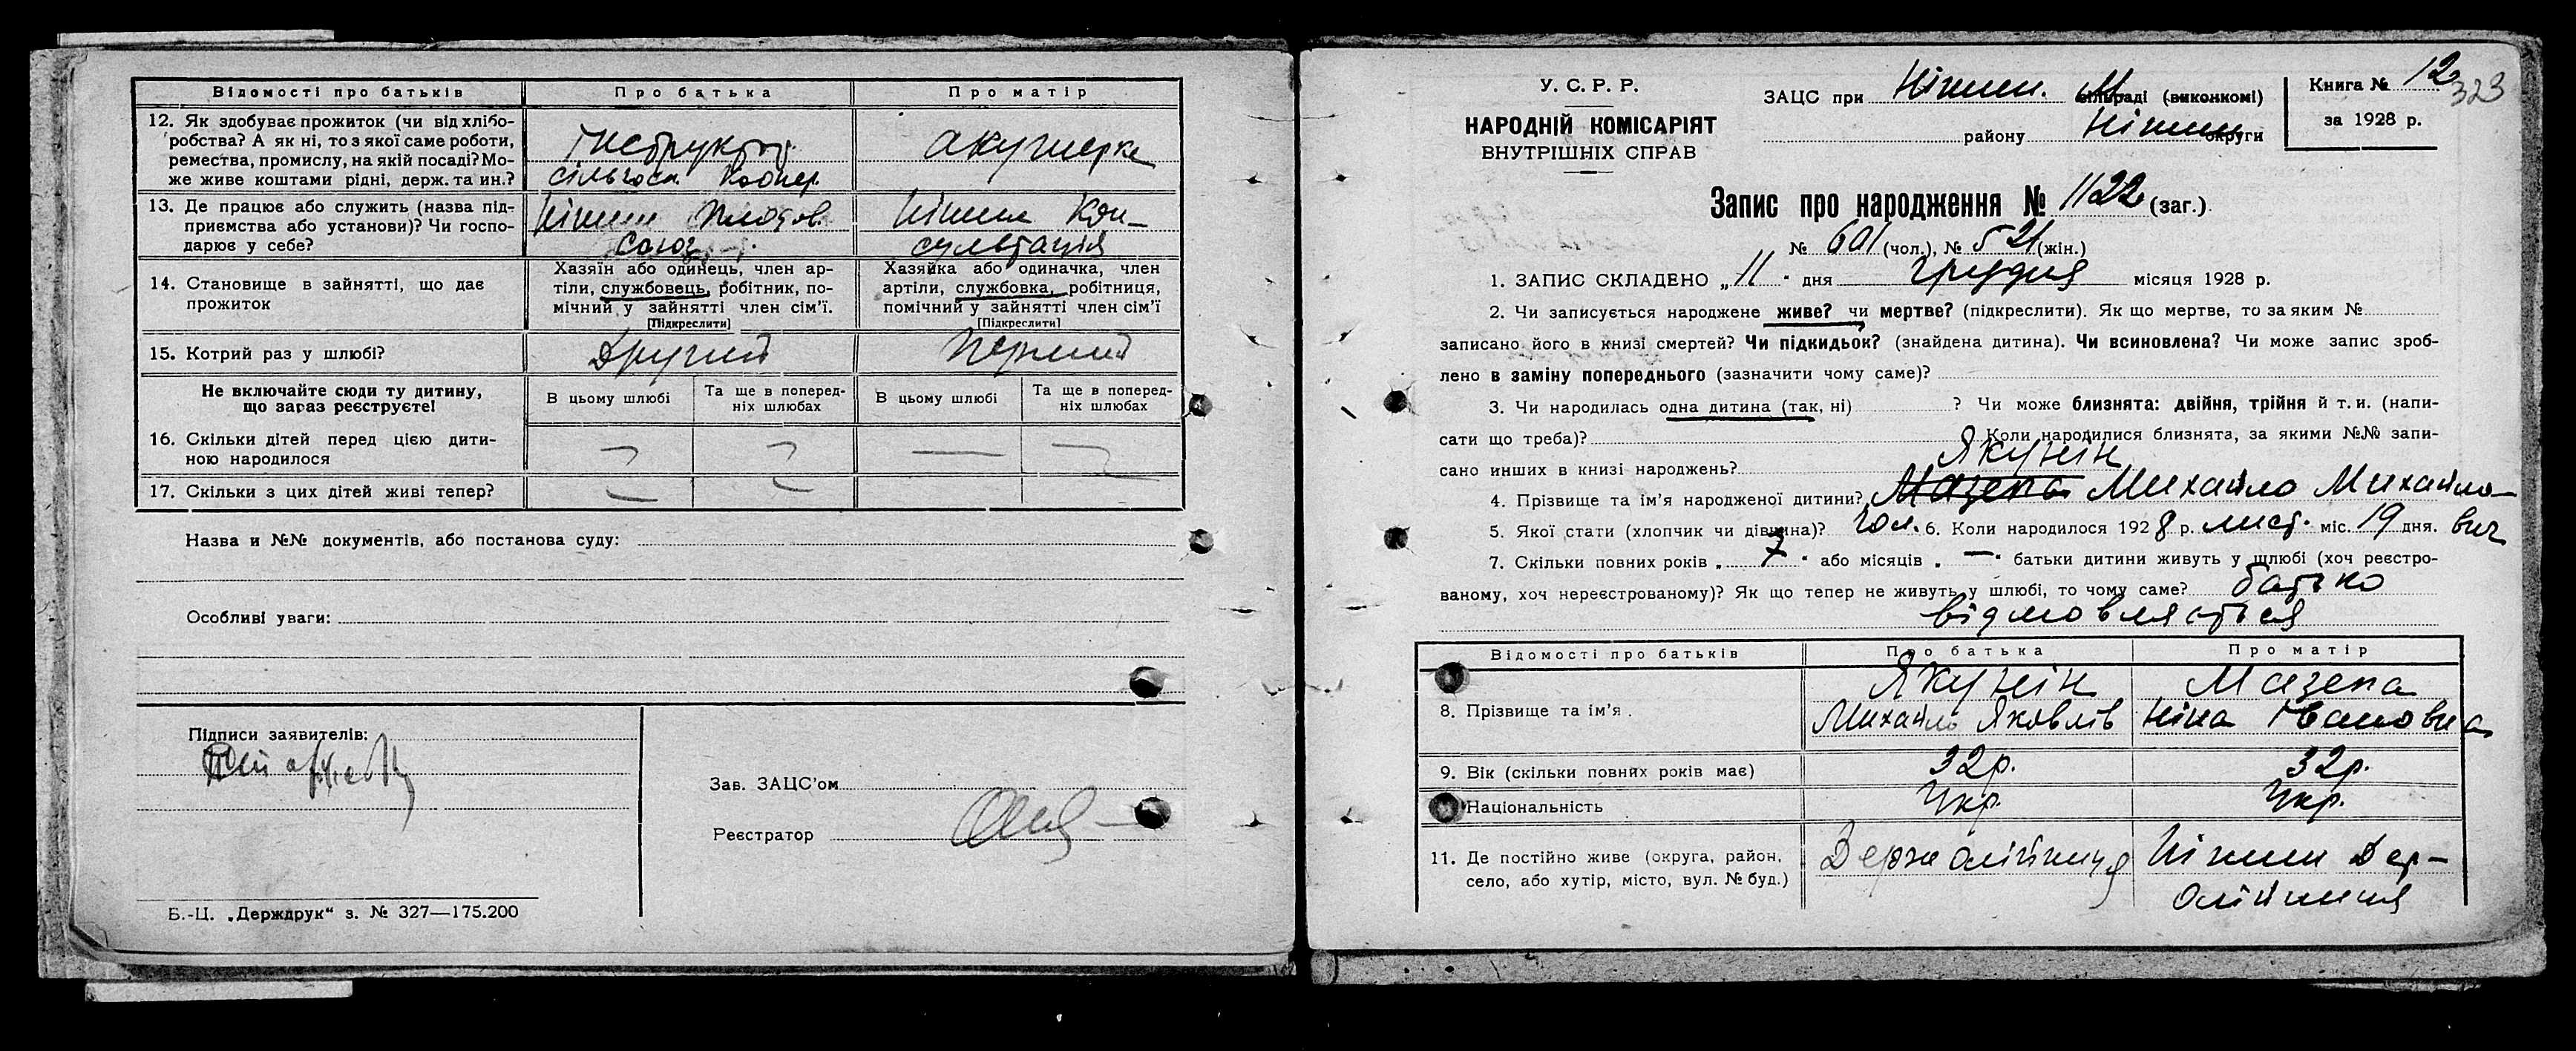 Відомості про батьків Про батька Про матір
12. Як здобуває прожиток (чи від хлібо-
робства? А як ні, то з якої саме роботи,
ремества, промислу, на якій посаді? Мо-
же живе коштами рідні, держ. та ин.?
Інструктор
сільгосп. коопер.
акушерка
13. Де працює або служить (назва під-
приємства або установи)? Чи госпо-
дарює у себе?
Ніжин Плодов.
союз
Ніжин Кон-
сультація
14. Становище в зайнятті, що дає
прожиток
Хазяїн або одинець, член ар-
тіли, службовець, робітник, по-
мічний у зайнятті член сім’ї.
[Підкреслити]
Хазяйка або одиначка, член
артіли, службовка, робітниця,
помічний у зайнятті член сім’ї
[Підкреслити]
15. Котрий раз у шлюбі? Другий Перший
Не включайте сюди ту дитину,
що зараз реєструєте!
В цьому шлюбі
Та ще в поперед-
ніх шлюбах
В цьому шлюбі
Та ще в поперед-
ніх шлюбах
16. Скільки дітей перед цією дити-
ною народилося — — — —
17. Скільки з цих дітей живі тепер? — — —
Назва и №№ документів, або постанова суду:
Особливі уваги:
Підписи заявителів:
Зав. ЗАЦС’ом
Реєстратор
Б.-Ц. „Держдрук“ з. № 327—175.200
У. С. Р. Р.
НАРОДНІЙ КОМІСАРІЯТ
ВНУТРІШНІХ СПРАВ
ЗАЦС при Ніжин. М сільраді (виконкомі)
району Ніжин округи
Книга № 12
за 1928 р.
323
Запис про народження № 1122 (заг.).
№ 601 (чол.), № 521 (жін.)
1. ЗАПИС СКЛАДЕНО „11“ дня грудня місяця 1928 р.
2. Чи записується народжене живе? чи мертве? (підкреслити). Як що мертве, то за яким №
записано його в книзі смертей? Чи підкидьок? (знайдена дитина). Чи всиновлена? Чи може запис зроб-
лено в заміну попереднього (зазначити чому саме)?
3. Чи народилась одна дитина (так, ні) ? Чи може близнята: двійня, трійня й т. и. (напи-
сати що треба)? Коли народилися близнята, за якими №№ запи-
сано инших в книзі народжень?
Якунін
4. Прізвище та ім’я народженої дитини? Мазепа Михайло Михайло-
вич
5. Якої стати (хлопчик чи дівчина)? Чол. 6. Коли народилося 1928 р. лист. міс. 19 дня.
7. Скільки повних років „7“ або місяців „—“ батьки дитини живуть у шлюбі (хоч реєстро-
ваному, хоч нереєстрованому)? Як що тепер не живуть у шлюбі, то чому саме? батько
відмовляється
Відомості про батьків Про батька Про матір
8. Прізвище та ім’я.
Якунін
Михайло Яковлів
Мазепа
Ніна Івановна
9. Вік (скільки повних років має) 32р. 32р.
Національність Укр. Укр.
11. Де постійно живе (округа, район,
село, або хутір, місто, вул. № буд.)
Держ олійниця
Ніжин Дер-
олійниця